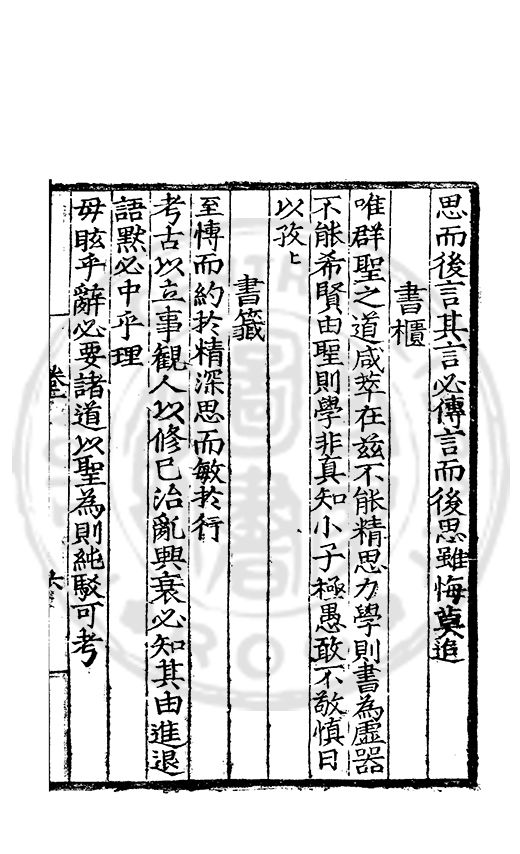 思而後言其言必傳言而後思雖悔莫追
書櫃
唯群聖之道咸萃在茲不能精思力學則書為虛器
不能希賢由聖則學非真知小子極愚敢不敬慎日
以孜〻
書籤
至慱而約於精深思而敏於行
考古以立事觀人以修己治亂興衰必知其由進退
語默必中乎理
毋眩乎辭必要諸道以聖為則純駁可考